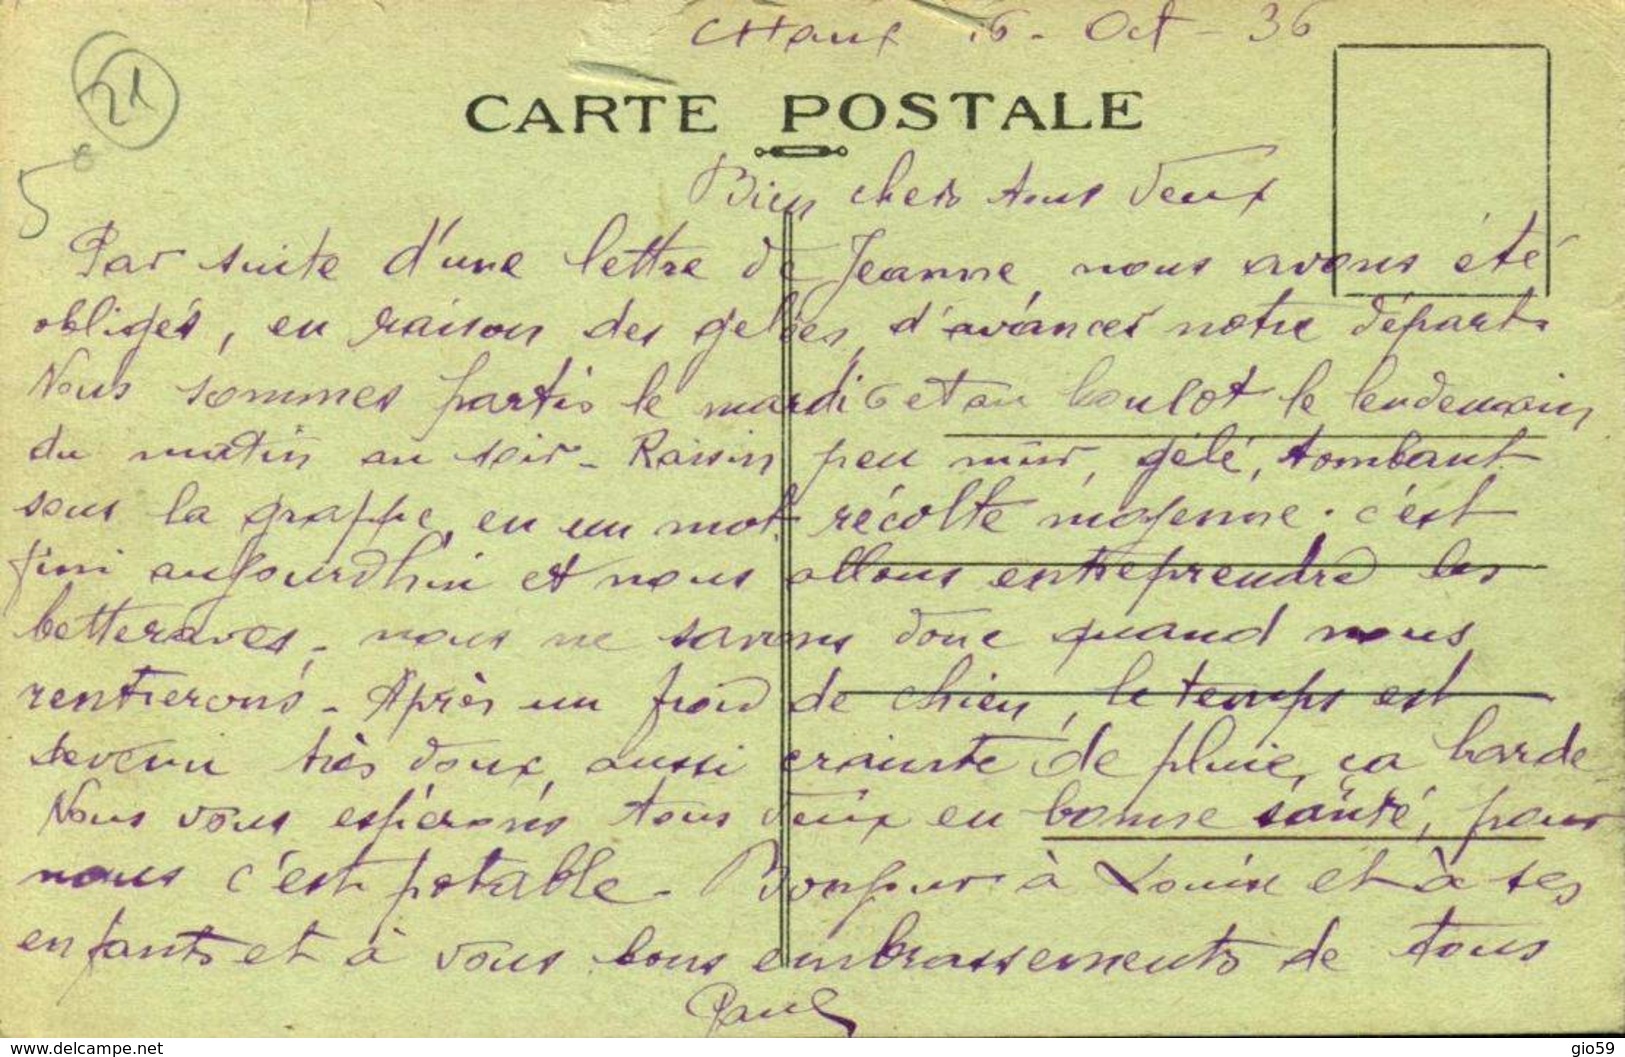 Chaux 16 - Oct - 36
21
5€
CARTE POSTALE
Bien chers tous deux
Par suite d'une lettre de Jeanne, nous avons été
obligés, en raison des gelées, d'avancer notre départ.
Nous sommes partis le mardi 6 et au boulot le lendemain
du matin au soir - Raisin peu mûr, gélé, tombant
sous la grappe, en un mot, récolte moyenne. c'est
fini aujourd'hui et nous allons entreprendre les
betteraves, nous ne savons donc quand nous
rentrerons - Après un froid de chien, le temps est
devenu très doux, aussi crainte de pluie, ça barde.
Nous vous espérons tous deux en bonne santé, pour
nous c'est potable - Bonjour à Louise et à ses
enfants et à vous bons embrassements de tous
Paul
www.delcampe.net
gio59